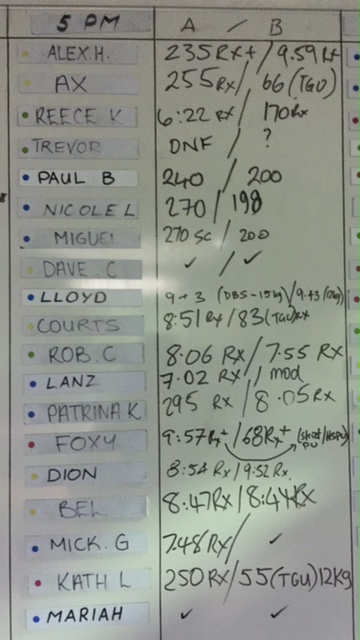 5 PM A / B
ALEX.H. 235 RX+ / 9.59 RX
AX 255 RX / 66 (TGU)
REECE K 6:22 RX / 170 RX
TREVOR DNF / ?
PAUL B 240 / 200
NICOLE L 270 / 198
MIGUEL 270 SC / 200
DAVE C ✓ / ✓
LLOYD 9+3 (DBS-15kg) / 9.43
COURTS 8:51 RX / 83 (TGU) RX
ROB.C 8.06 RX / 7.55 RX
LANZ 7.02 RX / mod
PATRINA K 295 RX / 8.05 RX
FOXY 9:57 RX+ / 68 RX+ HSPU
DION 8:54 RX / 9:52 RX
BEL 8:47 RX / 8:44 RX
MICK.G 7.48 RX / ✓
KATH L 250 RX / 55 (TGU) 12KG
MARIAH ✓ ✓